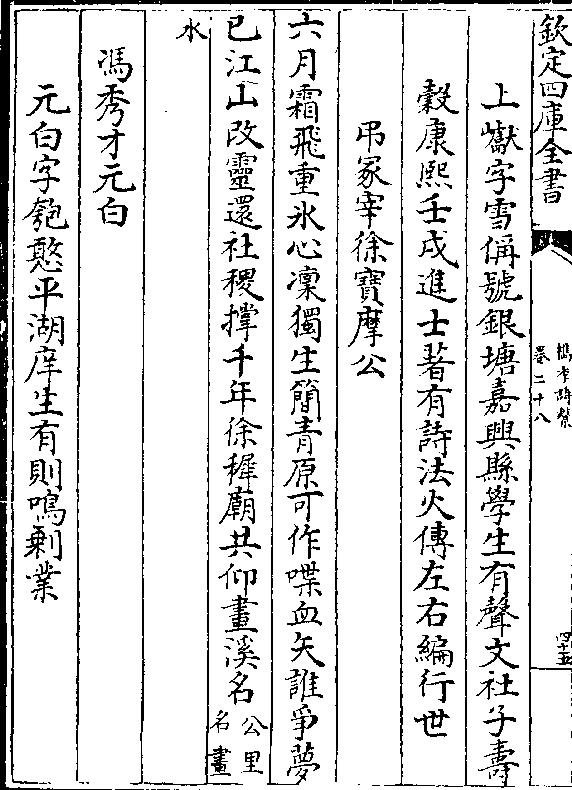 欽定四庫全書
檇李詩繫
卷二十八
四十五
上嶽字雪偁號銀塘嘉興縣學生有聲文社子壽
穀康熙壬戌進士著有詩法火傳左右編行世
弔冢宰徐寶摩公
六月霜飛重氷心凜獨生簡青原可作喋血矢誰爭夢
已江山改靈還社稷撑千年徐穉廟共仰畫溪名公里名畫
水
馮秀才元白
元白字匏憨平湖庠生有則鳴剩業